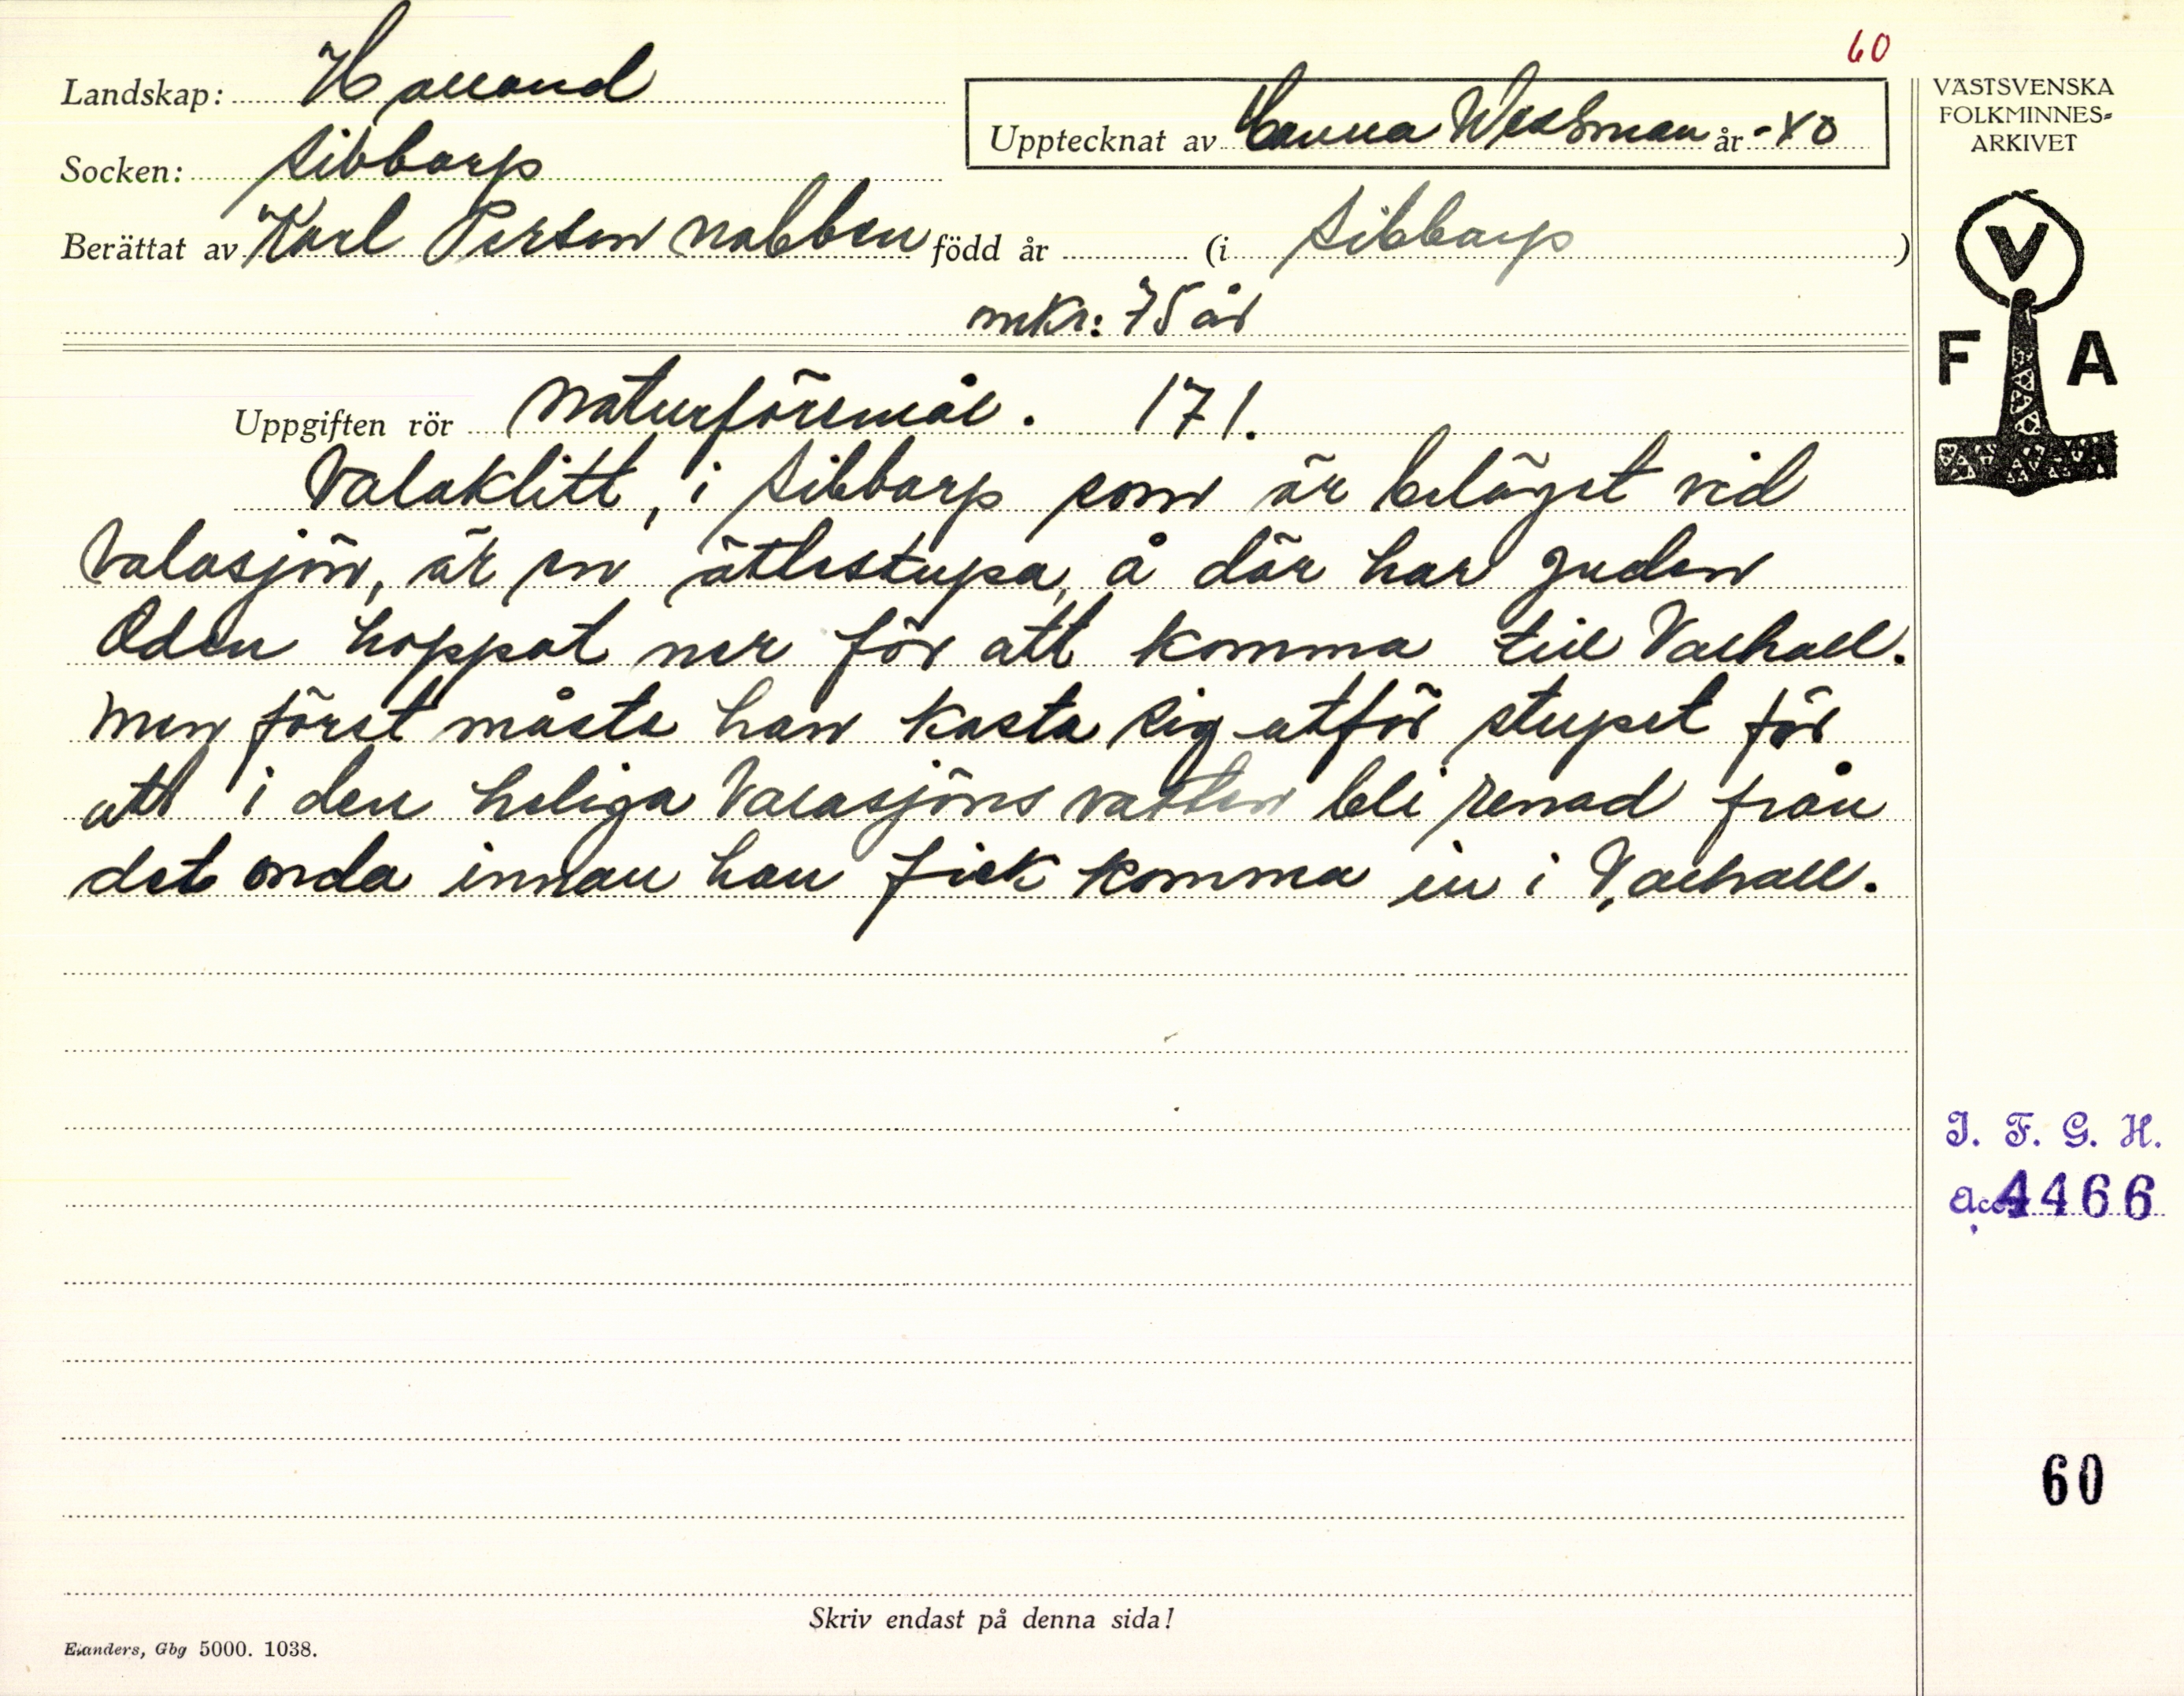 60
Landskap: Halland
Upptecknat av Hanna Wessman år -40
VÄSTSVENSKA
FOLKMINNES-
ARKIVET
Socken: Sibbarp
Berättat av Karl Person Nabben född år (i Sibbarp)
mkr: 75 år
V
F A
Uppgiften rör Naturföremål. 171.
Valaklitt, i Sibbarp som är beläget vid
Valasjön, är en ättestupa, å där har guden
Oden hoppat ner för att komma till Valhall.
Men först måste han kasta sig utför stupet för
att i den heliga Valasjöns vatten bli renad från
det onda innan han fick komma in i Valhall.
I. F. G. H.
Acc. 4466
60
Skriv endast på denna sida!
Elanders, Gbg 5000. 1038.